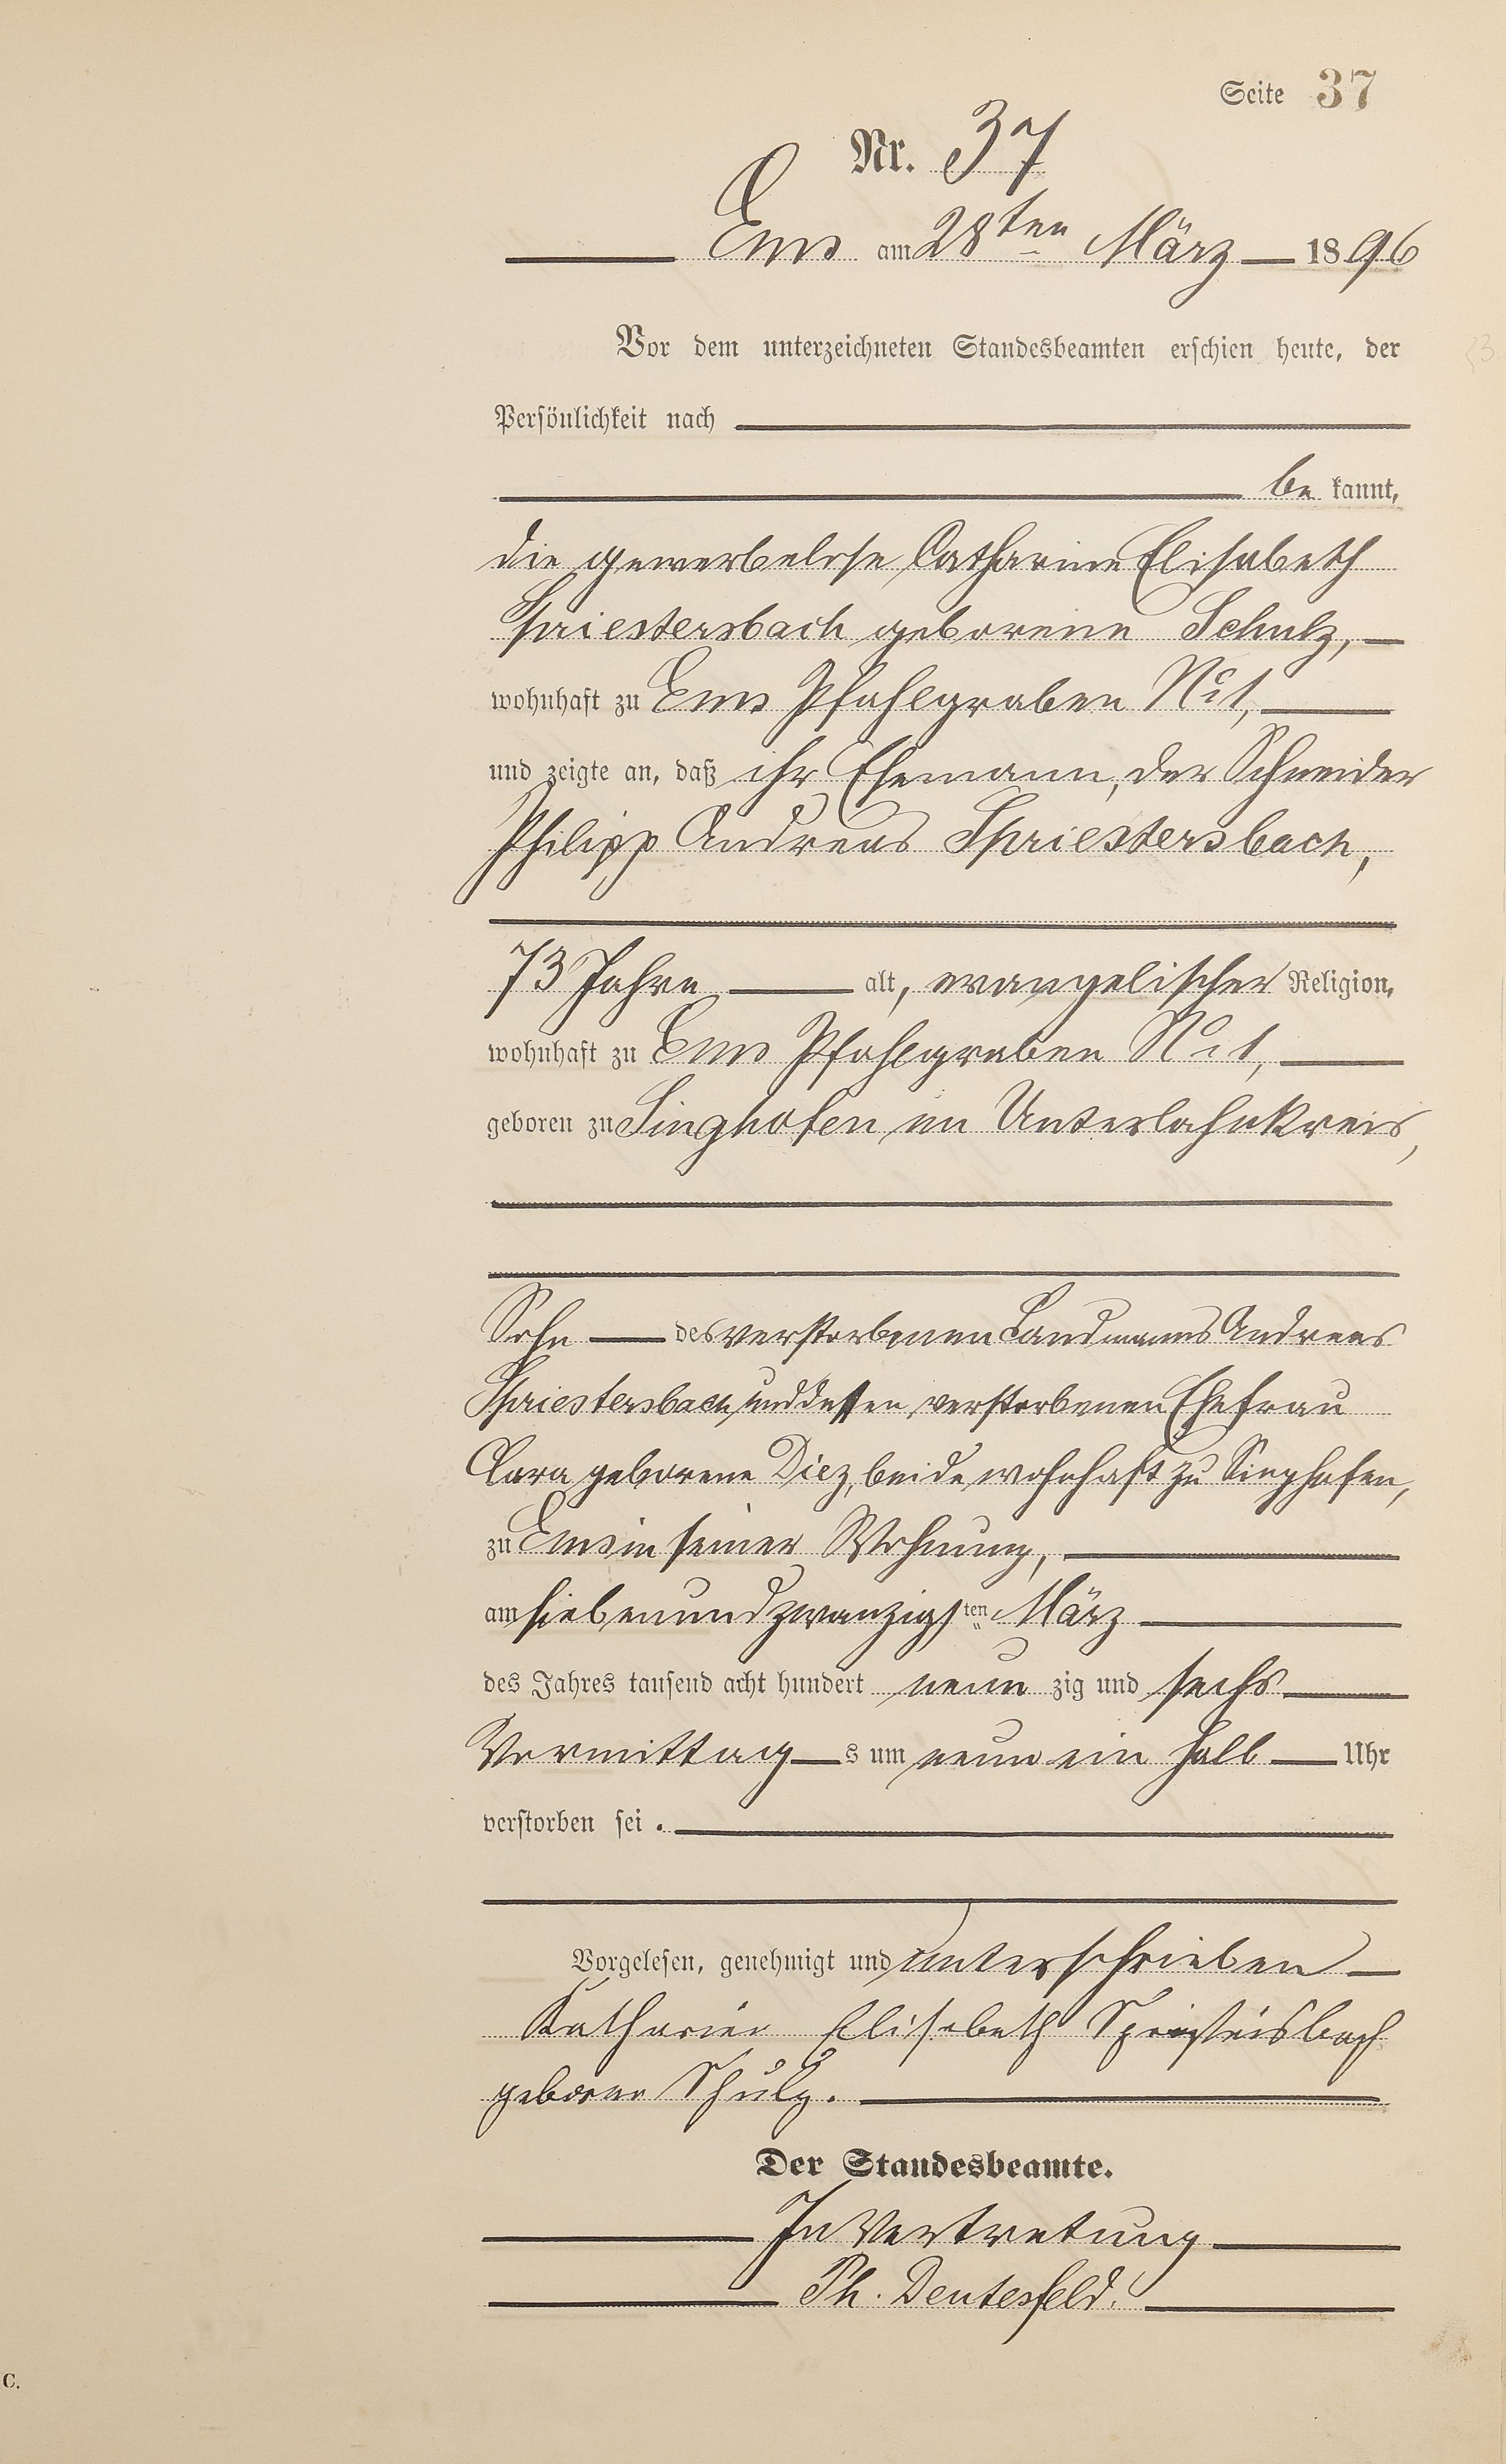 Seite 37
Nr. 37
Ems am 28ten März 1896
Vor dem unterzeichneten Standesbeamten erschien heute, der
Persönlichkeit nach
be kannt,
die gewerbelose Catharine Elisabeth
Spriestersbach geborene Schulz,
wohnhaft zu Ems Pfahlgraben No 1,
und zeigte an, daß ihr Ehemann, der Schneider
Philipp Andreas Spriestersbach,
73 Jahre alt, evangelischer Religion,
wohnhaft zu Ems Pfahlgraben No 1,
geboren zu Singhofen im Unterlahnkreis,
Sohn des verstorbenen Landmanns Andreas
Spriestersbach und dessen verstorbenen Ehefrau
Clara geborene Diez, beide wohnhaft zu Singhofen,
zu Ems in seiner Wohnung,
am siebenundzwanzigsten März
des Jahres tausend acht hundert neun zig und sechs
Vormittag s um neun ein halb Uhr
verstorben sei.
Vorgelesen, genehmigt und unterschrieben
Elisabeth
Schulz.
Der Standesbeamte.
In Vertretung
Ph. Deutesfeld.
C.